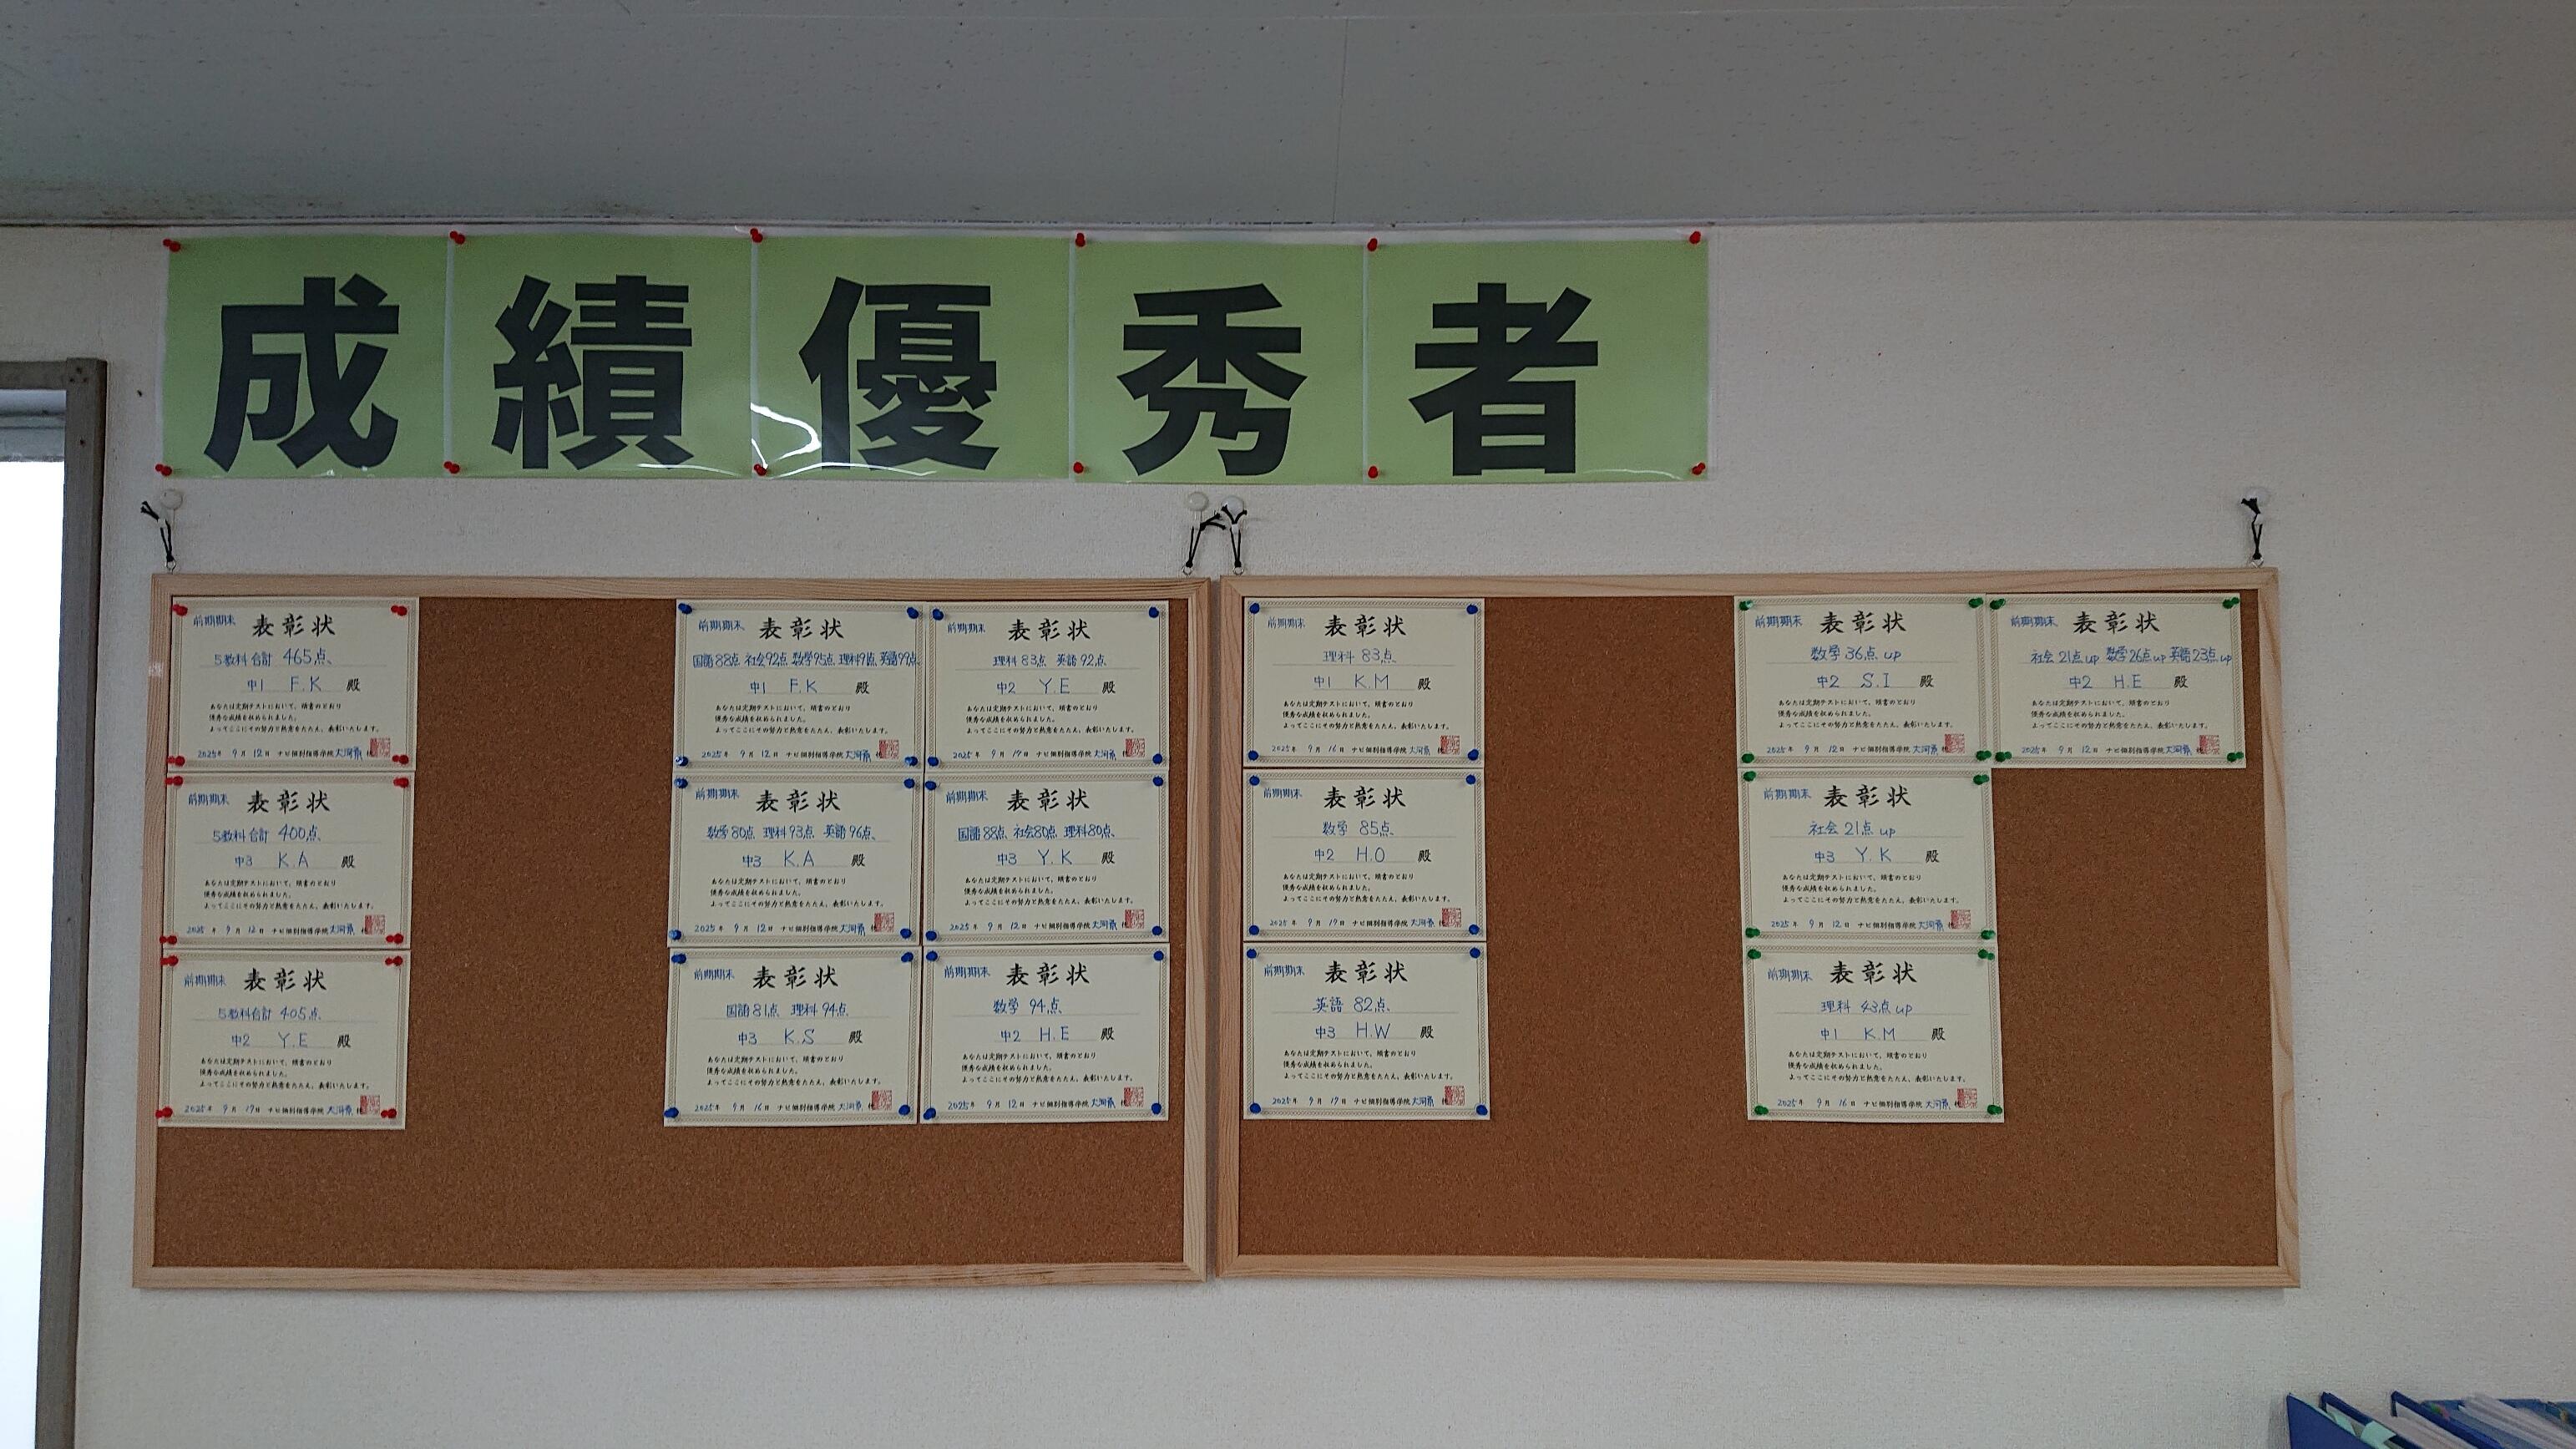 成績優秀者
前期期末 表彰状
5教科合計 465点
中1 F.K 殿
あなたは定期テストにおいて、頭書のとおり
優秀な成績を収められました。
よってここにその努力と熱意をたたえ、表彰いたします。
2025年 9月 12日 ナビ個別指導学院
前期期末 表彰状
5教科合計 400点
中3 K.A 殿
あなたは定期テストにおいて、頭書のとおり
優秀な成績を収められました。
よってここにその努力と熱意をたたえ、表彰いたします。
2025年 9月 12日 ナビ個別指導学院
前期期末 表彰状
5教科合計 405点
中2 Y.E 殿
あなたは定期テストにおいて、頭書のとおり
優秀な成績を収められました。
よってここにその努力と熱意をたたえ、表彰いたします。
2025年 9月 19日 ナビ個別指導学院
前期期末 表彰状
国語88点 社会92点 数学95点 理科91点 英語99点
中1 F.K 殿
あなたは定期テストにおいて、頭書のとおり
優秀な成績を収められました。
よってここにその努力と熱意をたたえ、表彰いたします。
2025年 9月 12日 ナビ個別指導学院
前期期末 表彰状
理科83点 英語92点
中2 Y.E 殿
あなたは定期テストにおいて、頭書のとおり
優秀な成績を収められました。
よってここにその努力と熱意をたたえ、表彰いたします。
2025年 9月 19日 ナビ個別指導学院
前期期末 表彰状
数学80点 理科93点 英語96点
中3 K.A 殿
あなたは定期テストにおいて、頭書のとおり
優秀な成績を収められました。
よってここにその努力と熱意をたたえ、表彰いたします。
2025年 9月 12日 ナビ個別指導学院
前期期末 表彰状
国語88点 社会80点 理科80点
中3 Y.K 殿
あなたは定期テストにおいて、頭書のとおり
優秀な成績を収められました。
よってここにその努力と熱意をたたえ、表彰いたします。
2025年 9月 12日 ナビ個別指導学院
前期期末 表彰状
国語81点 理科94点
中3 K.S 殿
あなたは定期テストにおいて、頭書のとおり
優秀な成績を収められました。
よってここにその努力と熱意をたたえ、表彰いたします。
2025年 9月 16日 ナビ個別指導学院
前期期末 表彰状
数学 94点
中2 H.E 殿
あなたは定期テストにおいて、頭書のとおり
優秀な成績を収められました。
よってここにその努力と熱意をたたえ、表彰いたします。
2025年 9月 12日 ナビ個別指導学院
前期期末 表彰状
理科 83点
中1 K.M 殿
あなたは定期テストにおいて、頭書のとおり
優秀な成績を収められました。
よってここにその努力と熱意をたたえ、表彰いたします。
2025年 9月 16日 ナビ個別指導学院
前期期末 表彰状
数学 85点
中2 H.O 殿
あなたは定期テストにおいて、頭書のとおり
優秀な成績を収められました。
よってここにその努力と熱意をたたえ、表彰いたします。
2025年 9月 19日 ナビ個別指導学院
前期期末 表彰状
英語 82点
中3 H.W 殿
あなたは定期テストにおいて、頭書のとおり
優秀な成績を収められました。
よってここにその努力と熱意をたたえ、表彰いたします。
2025年 9月 19日 ナビ個別指導学院
前期期末 表彰状
数学36点up
中2 S.I 殿
あなたは定期テストにおいて、頭書のとおり
優秀な成績を収められました。
よってここにその努力と熱意をたたえ、表彰いたします。
2025年 9月 12日 ナビ個別指導学院
前期期末 表彰状
社会21点up 数学26点up 英語23点up
中2 H.E 殿
あなたは定期テストにおいて、頭書のとおり
優秀な成績を収められました。
よってここにその努力と熱意をたたえ、表彰いたします。
2025年 9月 12日 ナビ個別指導学院
前期期末 表彰状
社会21点up
中3 Y.K 殿
あなたは定期テストにおいて、頭書のとおり
優秀な成績を収められました。
よってここにその努力と熱意をたたえ、表彰いたします。
2025年 9月 12日 ナビ個別指導学院
前期期末 表彰状
理科43点up
中1 K.M 殿
あなたは定期テストにおいて、頭書のとおり
優秀な成績を収められました。
よってここにその努力と熱意をたたえ、表彰いたします。
2025年 9月 16日 ナビ個別指導学院